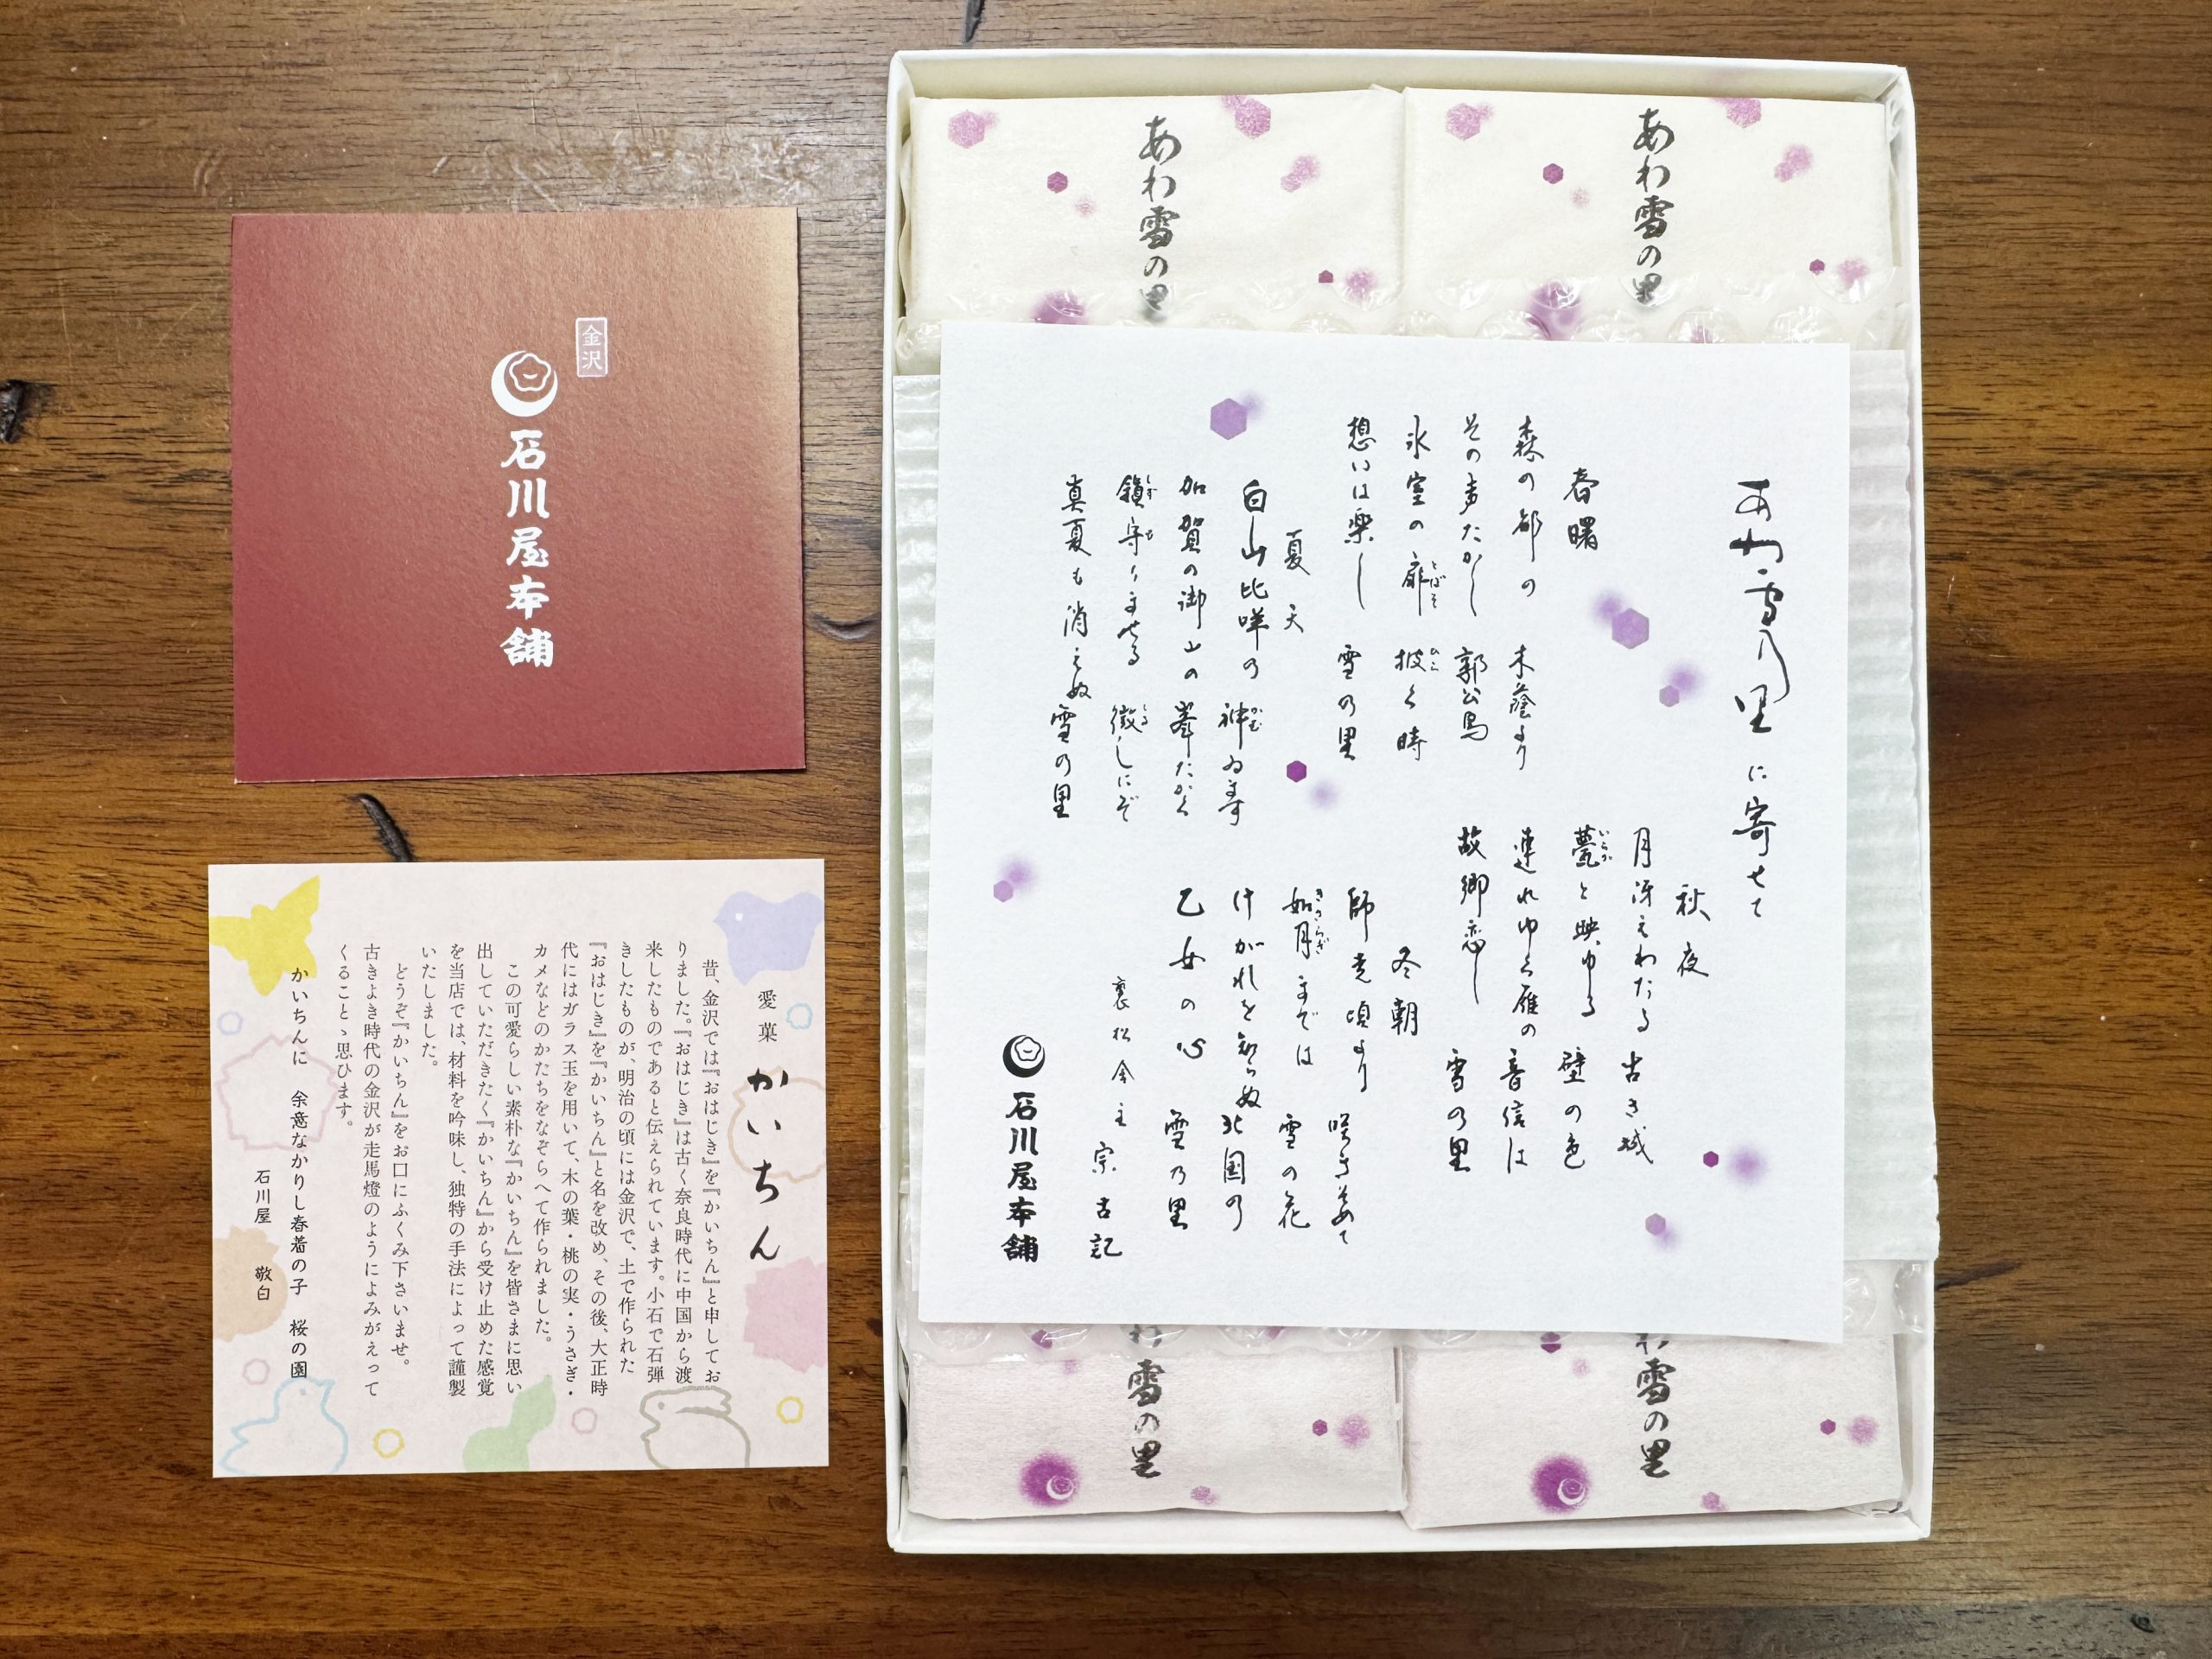 金沢
石川屋本舗
愛菓 かいちん
昔、金沢では『おはじき』を『かいちん』と申してお
りました。『おはじき』は古く奈良時代に中国から渡
来したものであると伝えられています。小石で石弾
きしたものが、明治の頃には金沢で、土で作られた
『おはじき』を『かいちん』と名を改め、その後、大正時
代にはガラス玉を用いて、木の葉・桃の実・うさぎ・
カメなどのかたちをなぞらへて作られました。
この可愛らしい素朴な『かいちん』を皆さまに思い
出していただきたく『かいちん』から受け止めた感覚
を当店では、材料を吟味し、独特の手法によって謹製
いたしました。
どうぞ『かいちん』をお口にふくみ下さいませ。
古きよき時代の金沢が走馬燈のようによみがえって
くることゝ思ひます。
かいちんに 余念なかりし春着の子 桜の園
石川屋 敬白
あわ雪の里
あわ雪の里
あわ雪乃里に寄せて
春曙
森の都の 木蔭より
その声たかし 郭公鳥
氷室の扉 披く時
とぼそ
ひら
想いは楽し 雪の里
夏天
白山比咩の 神ゐます
かむ
加賀の御山の 峯たかく
鎮守りませる 徴しにぞ
しず
も
しる
真夏も消えぬ 雪の里
秋夜
月冴えわたる 古き城
甍と映ゆる 壁の色
いらか
連れゆく雁の 音信は
故郷恋し 雪の里
冬朝
師走頃より 咲きそめて
如月までは 雪の花
きさらぎ
けがれを知らぬ 北国の
乙女の心 雪乃里
裏松舎主 宗吉記
石川屋本舗
わ雪の里
わ雪の里